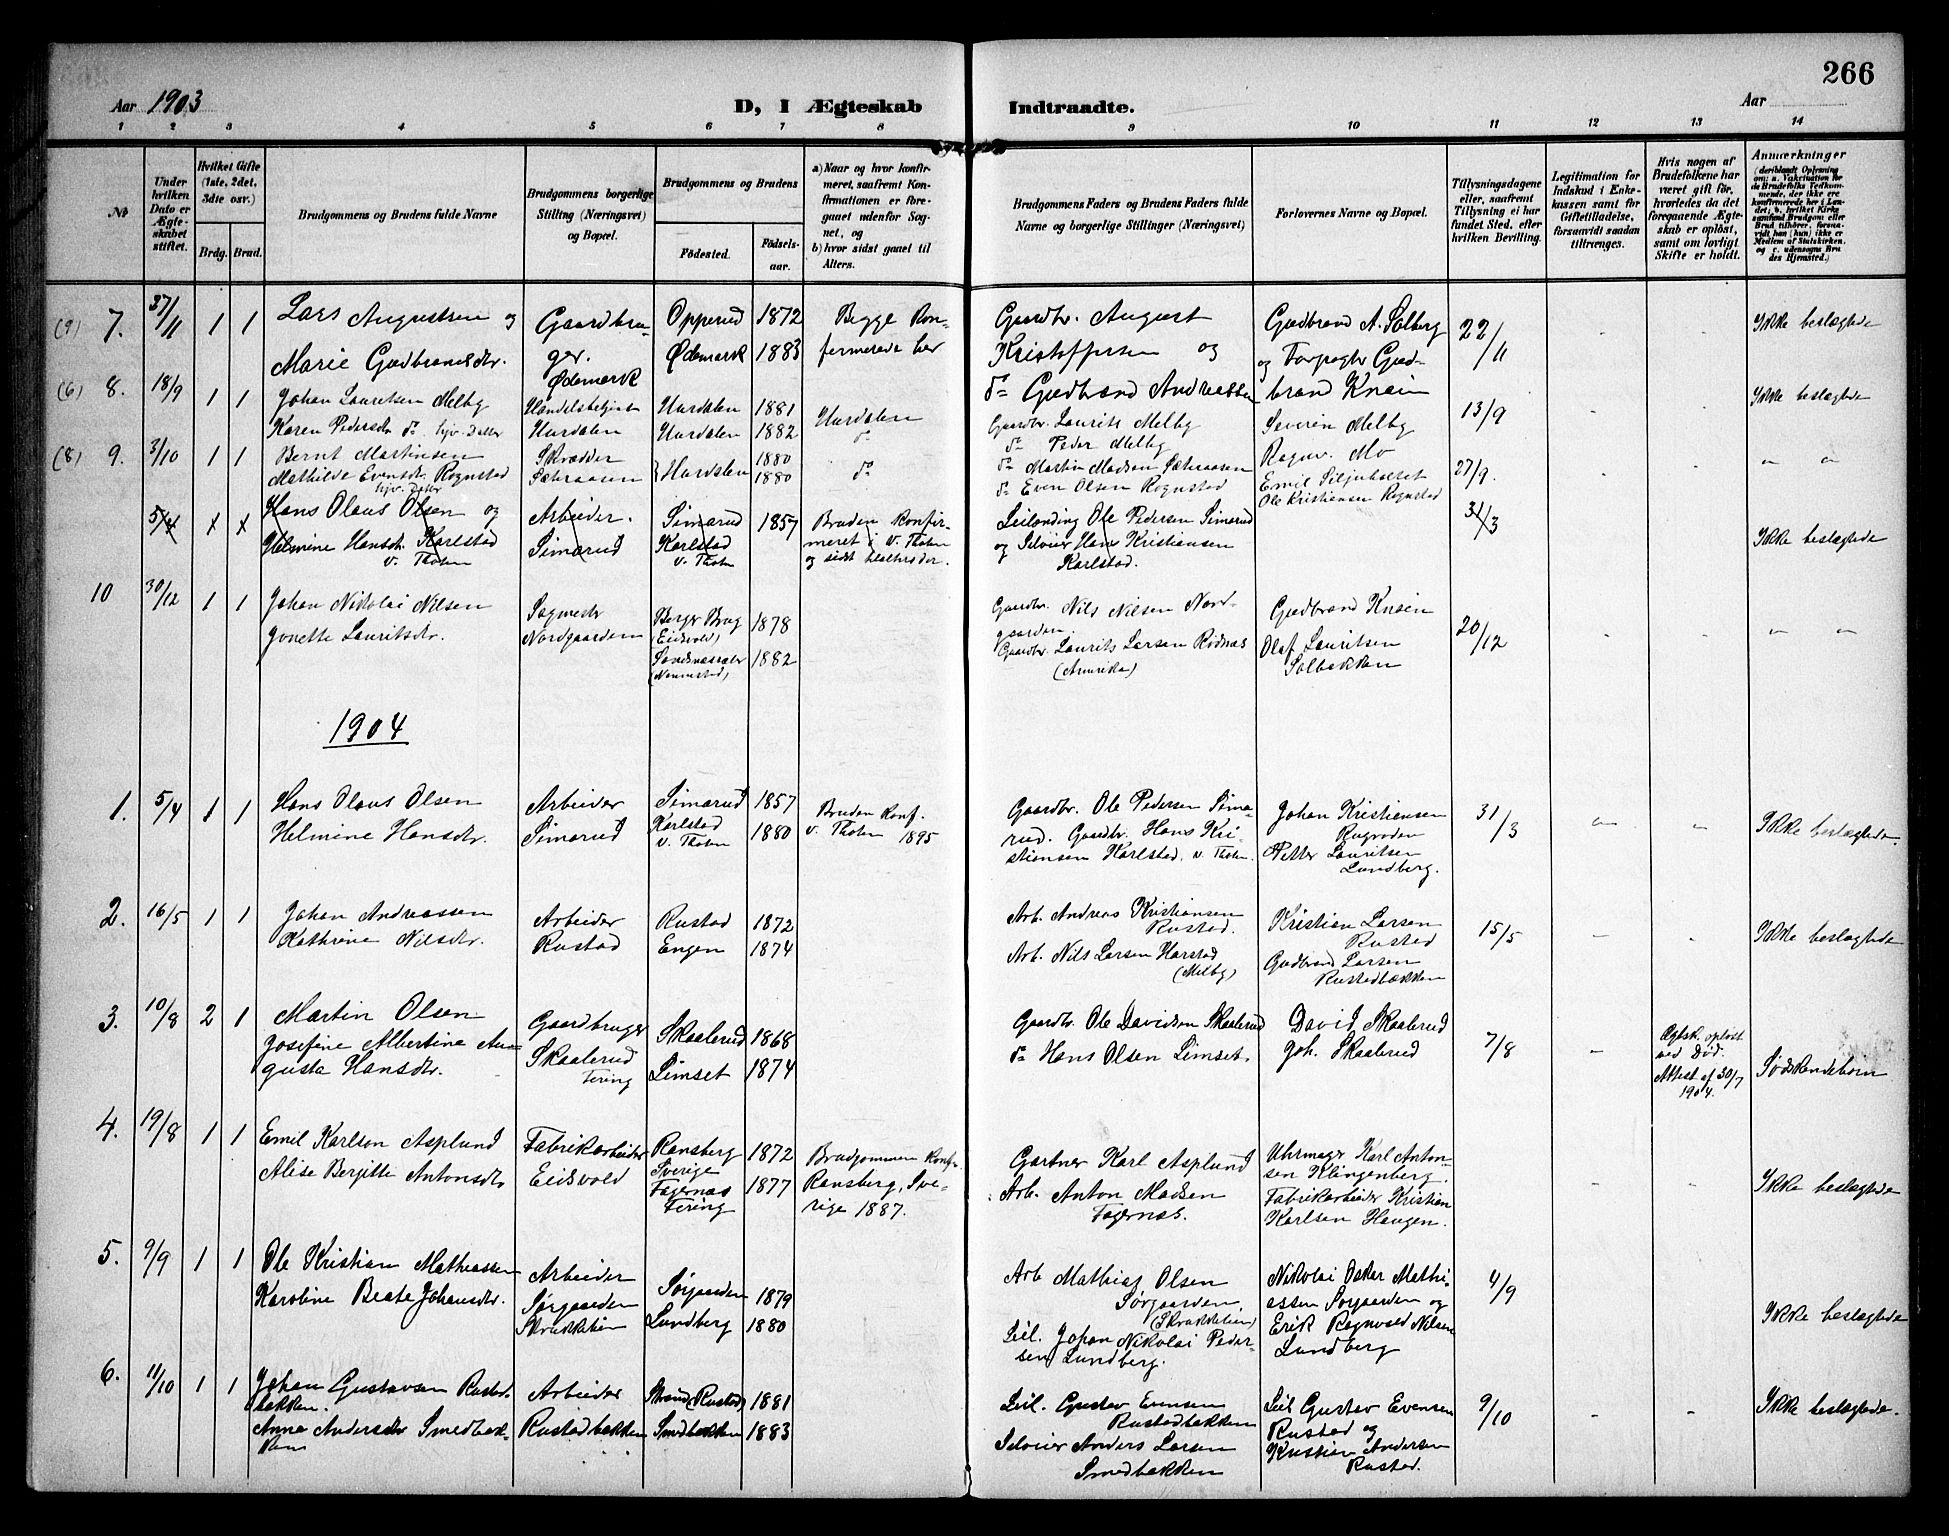 266
Aar 1903
D, I Ægteskab Indtraadte.
Aar
1 2 3 4 5 6 7 8 9 10 11 12 13 14
№
Under hvilken Dato er Ægteskabet stiftet.
Hvilket Gifte (1ste, 2det, 3dte osv.)
Brdg. Brud.
Brudgommens og Brudens fulde Navne
Brudgommens borgerlige Stilling (Næringsvei) og Bopæl.
Brudgommens og Brudens
Fødested. Fødselsaar.
a) Naar og hvor konfirmeret, saafremt Konfirmationen er foregaaet udenfor Sognet, og
b) hvor sidst gaaet til Alters.
Brudgommens Faders og Brudens Faders fulde Navne og borgerlige Stillinger (Næringsvei)
Forlovernes Navne og Bopæl.
Tillysningsdagene eller, saafremt Tillysning ei har fundet Sted, efter hvilken Bevilling.
Legitimation for Indskud i Enkekassen samt for Giftetilladelse, forsaavidt saadan tiltrænges.
Hvis nogen af Brudefolkene har været gift før, hvorledes da det foregaaende Ægteskab er opløst, samt om lovligt Skifte er holdt.
Anmærkninger
(9) 7. 27/11 1 1
Lars Augustsen og
Marie Gudbrandsdtr.
Gaardbruger.
Ødemark
Opperud 1872
Ødemark 1883
Begge Konfermerede her
Gaardbr. August
Kristoffersen og
do Gudbrand Andreassen
Gudbrand A. Solberg
og Forpagter Gudbrand Knain
22/11
Ikke beslægtede
(6) 8. 18/9 1 1
Johan Lauritsen Melby
Karen Pedersdtr. do hjv. Datter
Handelsbetjent
Hurdalen
Hurdalen 1881
Hurdalen 1882
Hurdalen
do
Gaardbr. Laurits Melby
do Peder Melby
Severin Melby
Ragnv. Mo
13/9
Ikke beslægtede
(8) 9. 3/10 1 1
Bernt Martinsen
Mathilde Evensdtr. Rognstad
hjv. Datter
Skrædder
Sætraasen
Hurdalen 1880
1880
do
do Martin Madsen Sætraasen
do Even Olsen Rognstad
Emil Siljuholtet
Ole Kristiansen Rognstad
27/9.
" "
5/4 1 1
Hans Olaus Olsen og
Helmine Hansdtr. Karlstad
v. Thoten
Arbeider.
Simarud
Simarud 1857
Karlstad
v. Thoten
Bruden Konfirmeret i V. Thoten
og sidst
Leilending Ole Pedersen Simarud
og Selveier Hans Kristiansen
Karlstad.
31/3
Ikke beslægtede
10 30/12 1 1
Johan Nikolai Nilsen
Jonette Lauritsdtr.
Sagmester
Nordgaarden
Berger Brug 1878
(Eidsvold)
1882
(Nannestad)
Gaardbr. Nils Nilsen Nordgaarden
Gaardbr. Laurits Larsen Rødnæs
(Amerika)
Gudbrand Knain
Olaf Lauritsen
Solbakken
20/12
" "
1904
1. 5/4 1 1
Hans Olaus Olsen
Helmine Hansdtr.
Arbeider
Simarud
Simarud 1857
Karlstad
v. Thoten 1880
Bruden Konf.
v. Thoten 1895
Gaardbr. Ole Pedersen Simarud. Gaardbr. Hans Kristiansen Karlstad, v. Thoten.
Johan Kristiansen
Rugroden
Petter Lauritsen
Lundberg.
31/3
Ikke beslægtede.
2. 16/5 1 1
Johan Andreassen
Kathrine Nilsdtr.
Arbeider
Rustad
Rustad 1872
Engen 1874
Arb. Andreas Kristiansen
Rustad.
Arb. Nils Larsen Harstad
(Melby)
Kristian Larsen
Rustad
Gudbrand Larsen
Rustadbækken
15/5
Ikke beslægtede
3. 10/8 2 1
Martin Olsen
Josefine Albertine Augusta Hansdtr.
Gaardbruger
Skaalerud
Fering
Skaalerud 1868
Limset 1874
Gaardbr. Ole Davidsen Skaalerud
do Hans Olsen Limset.
David Skaalerud
Joh. Skaalerud
7/8
Ægtesk. opløst
ved Død.
Attest af 30/7
1904.
Sødskendebørn
4. 19/8 1 1
Emil Karlson Asplund
Alise Bergitte Antonsdtr
Fabrikarbeider
Eidsvold
Ransberg 1872
Sverige
Fagernæs 1877
Fering
Brudgommen Konf.
Ransberg, Sverige 1887.
Gartner Karl Asplund
Arb. Anton Madsen
Fagernæs.
Uhrmager Karl Antonsen Klingenberg.
Fabrikarbeider Kristian
Karlsen Haugen.
Ikke beslægtede
5. 9/9 1 1
Ole Kristian Mathiassen
Karoline Beate Johansdtr.
Arbeider
Sørgaarden
Skrukkelien
Sørgaarden 1879
Lundberg 1880
Arb Mathias Olsen
Sørgaarden,
(Skrukkelien)
Leil. Johan Nikolai Pedersen Lundberg.
Nikolai Oskar Mathiassen Sørgaarden og
Erik Ragnvald Nilsen
Lundberg
4/9
Ikke beslægtede
6. 11/10 1 1
Johan Gustavsen Rustadbækken.
Anna Andersdtr Smedbækken
Arbeider
Rustadbækken
Strand (Rustad) 1881
Smedbækken 1883
Leil. Gustav Evensen
Rustadbækken
Selveier Anders Larsen
Smedbækken
Leil Gustav Evensen
Rustad og
Kristian Andersen
Rustad.
9/10
Ikke beslægtede.